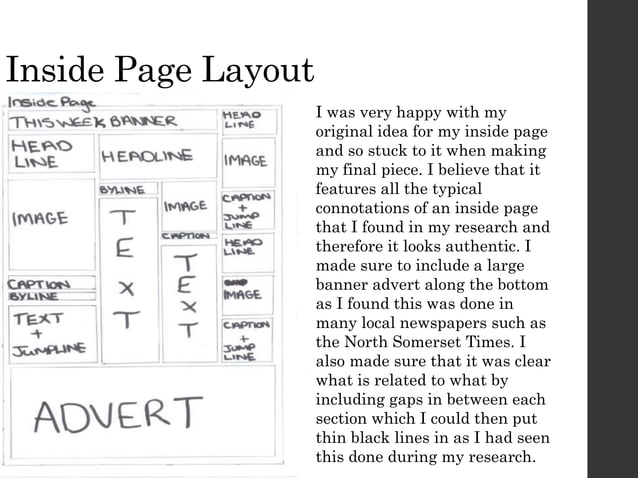 Inside Page Layout
Inside Page
THIS WEEK BANNER
HEAD
LINE
HEAD
LINE
HEADLINE
IMAGE
BYLINE
IMAGE
T
E
X
T
IMAGE
CAPTION
T
E
X
T
CAPTION
+
JUMP
LINE
HEAD
LINE
IMAGE
CAPTION
+
JUMP
LINE
CAPTION
BYLINE
TEXT
+
JUMPLINE
ADVERT
I was very happy with my
original idea for my inside page
and so stuck to it when making
my final piece. I believe that it
features all the typical
connotations of an inside page
that I found in my research and
therefore it looks authentic. I
made sure to include a large
banner advert along the bottom
as I found this was done in
many local newspapers such as
the North Somerset Times. I
also made sure that it was clear
what is related to what by
including gaps in between each
section which I could then put
thin black lines in as I had seen
this done during my research.